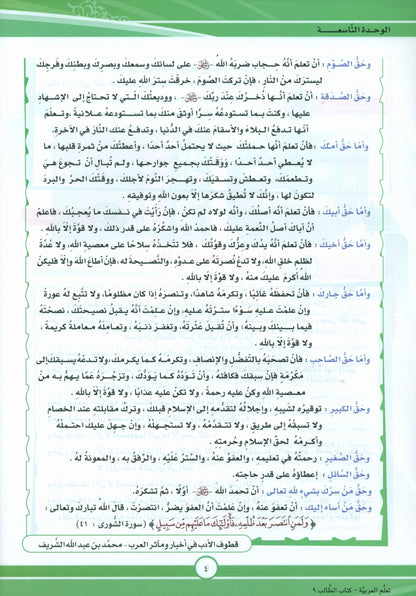 الوحدة التّاسعة
وَحَقُّ الصَّوْم : أنْ تعلمَ أنّهُ حجابٌ ضربَهُ اللهُ -ﷻ- على لسانكَ وسمعكَ وبصركَ وبطنكَ وفرجكَ
ليستركَ منَ النّارِ، فإنْ تركتَ الصّومَ، خرقتَ سترَ اللهِ عليكَ .
وَحَقُّ الصّدقةِ : أنْ تعلمَ أنّها ذُخركَ عندَ ربّكَ -ﷻ- ، ووديعتُكَ الّتي لا تحتاجُ إلى الإشهادِ
عليها ، وكنتَ بما تستودعُهُ سرًّا أوثقَ منكَ بما تستودعُهُ علانيةً ،وتعلمَ
أنّها تدفعُ البلاءَ والأسقامَ عنكَ في الدّنيا ، وتدفعُ عنكَ النّارَ في الآخرةِ.
وأمّا حَقُّ أمّكَ: فأنْ تعلمَ أنّها حملتْكَ حيثُ لا يحتملُ أحدٌ أحدًا ، وأعطتْكَ منْ ثمرةِ قلبِها ، ما
لا يُعطي أحدٌ أحدًا ، وَوَقَتْكَ بجميعِ جوارحِها ، ولم تُبالِ أنْ تجوعَ هيَ
وتطعمَكَ، وتعطشَ وتسقيَكَ، وتهجرَ النّومَ لأجلكَ، ووقتْكَ الحرَّ والبردَ
لتكونَ لها ، وإنّكَ لا تُطيقُ شكرَها إلّا بعونِ اللهِ وتوفيقِهِ .
وأمّا حَقُّ أبيكَ : فأنْ تعلمَ أنّهُ أصلُكَ، وأنّهُ لولاهُ لم تكنْ، فإنْ رأيتَ في نفسكَ ما يُعجبُكَ، فاعلمْ
أنَّ أباكَ أصلُ النّعمةِ عليكَ، فاحمدِ اللهَ واشكرْهُ على قدرِ ذلكَ، ولا قوّةَ إلّا باللهِ .
وأمّا حَقُّ أخيكَ : فأنْ تعلمَ أنّهُ يدُكَ وعزُّكَ وقوّتُكَ ، فلا تتّخذْهُ سلاحًا على معصيةِ اللهِ، ولا عُدّةً
لظلمِ خلقِ اللهِ، ولا تدعْ نُصرتَهُ على عدوّهِ، والنّصيحةَ لهُ، فإنْ أطاعَ اللهَ وإلّا فليكنِ
اللهُ أكرمَ عليكَ منهُ ، ولا قوّةَ إلّا باللهِ.
وأمّا حَقُّ جاركَ: فأنْ تحفظَهُ غائبًا ، وتكرمَهُ شاهدًا، وتنصرَهُ إذا كانَ مظلومًا، ولا تتبعَ لهُ عورةً
وإنْ علمتَ عليهِ سوءًا سترتَهُ عليهِ، وإنْ علمتَ أنّهُ يقبلُ نصيحتَكَ، نصحتَهُ
فيما بينكَ وبينهُ، وأنْ تُقيلَ عثرتَهُ، وتغفرَ ذنبَهُ ، وتعاملَهُ معاملةً كريمةً ،
ولا قوّةَ إلّا باللهِ .
وأمّا حَقُّ الصّاحبِ : فأنْ تصحبَهُ بالتّفضّلِ والإنصافِ، وتكرمَهُ كما يكرمُكَ،ولا تدعْهُ يسبقُكَ إلى
مكرُمةٍ فإنْ سبقَكَ فكافئْهُ، وأنْ تودَّهُ كما يَوَدُّكَ، وتزجُرَهُ عمّا يهمُّ به منْ
معصيةِ اللهِ وكنْ عليهِ رحمةً ، ولا تكنْ عليهِ عذابًا ، ولا قوّةَ إلّا باللهِ.
وَحَقُّ الكبيرِ : توقيرُهُ لشيبِهِ، وإجلالُهُ لتقدُّمِهِ إلى الإسلامِ قبلكَ، وتركُ مقابلتِهِ عندَ الخصامِ
ولا تسبقْهُ إلى طريقٍ، ولا تتقدّمْهُ، ولا تستجهلْهُ، وإنْ جهلَ عليكَ احتملْهُ
وأكرمْهُ لحقِّ الإسلامِ وحُرمتِهِ .
وَحَقُّ الصّغيرِ : رحمتُهُ في تعليمِهِ، والعفوُ عنهُ، والسّترُ عليهِ، والرّفقُ بهِ، والمعونةُ لهُ.
وَحَقُّ السّائلِ : إعطاؤُهُ على قدرِ حاجتِهِ.
وَحَقُّ مَنْ سرّكَ بشيءٍ للهِ تعالى : أنْ تحمدَ اللهَ -ﷻ- أوّلًا ، ثمَّ تشكرَهُ.
وَحَقُّ مَنْ أساءَ إليكَ : أنْ تعفوَ عنهُ، وإنْ علمتَ أنَّ العفوَ يضرُّ ، انتصرْتَ، قالَ اللهُ تباركَ وتعالى :
﴿ وَلَمَنِ ٱنتَصَرَ بَعْدَ ظُلْمِهِۦ فَأُو۟لَـٰٓئِكَ مَا عَلَيْهِم مِّن سَبِيلٍ ﴾ ( سورة الشّورى : ٤١)
قطوف الأدب في أخبار ومآثر العرب – محمّد بن عبد الله الشّريف
٤
تعلّم العربيّة – كتاب الطّالب ٩